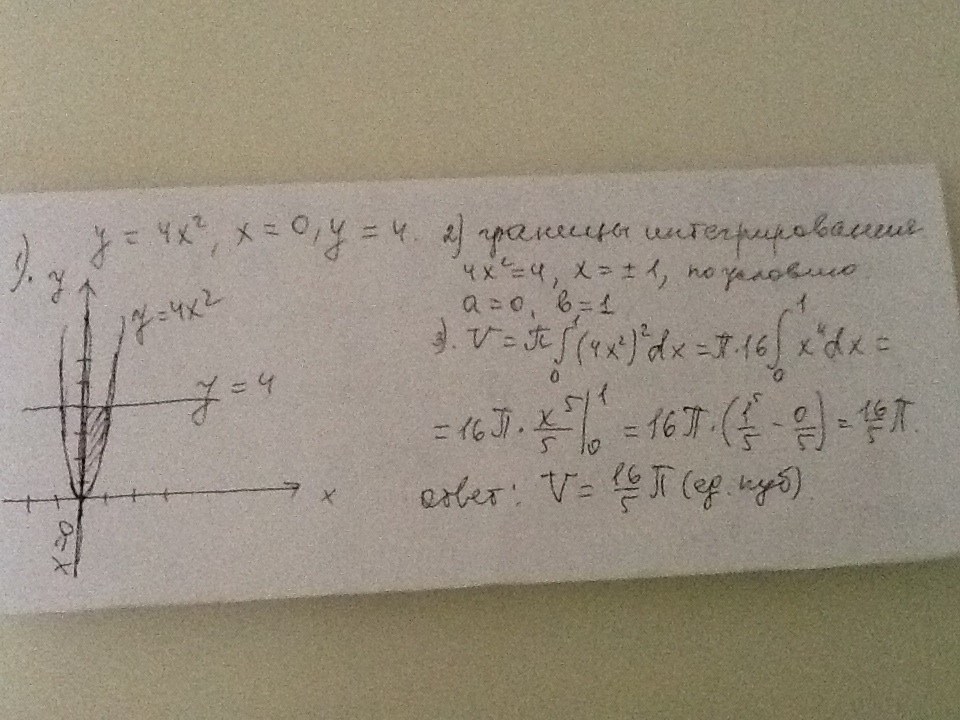 1). y = 4x², x = 0, y = 4.
y
y=4x²
y = 4
x
x=0
2) границы интегрирования
4x²=4, x = ±1, по условию
a=0, b=1
3). V = π∫₀¹(4x²)²dx = π·16∫₀¹ x⁴dx =
= 16π · x⁵/5 |₀¹ = 16π·(1⁵/5 - 0/5) = 16/5 π.
ответ: V = 16/5 π (ед. куб).